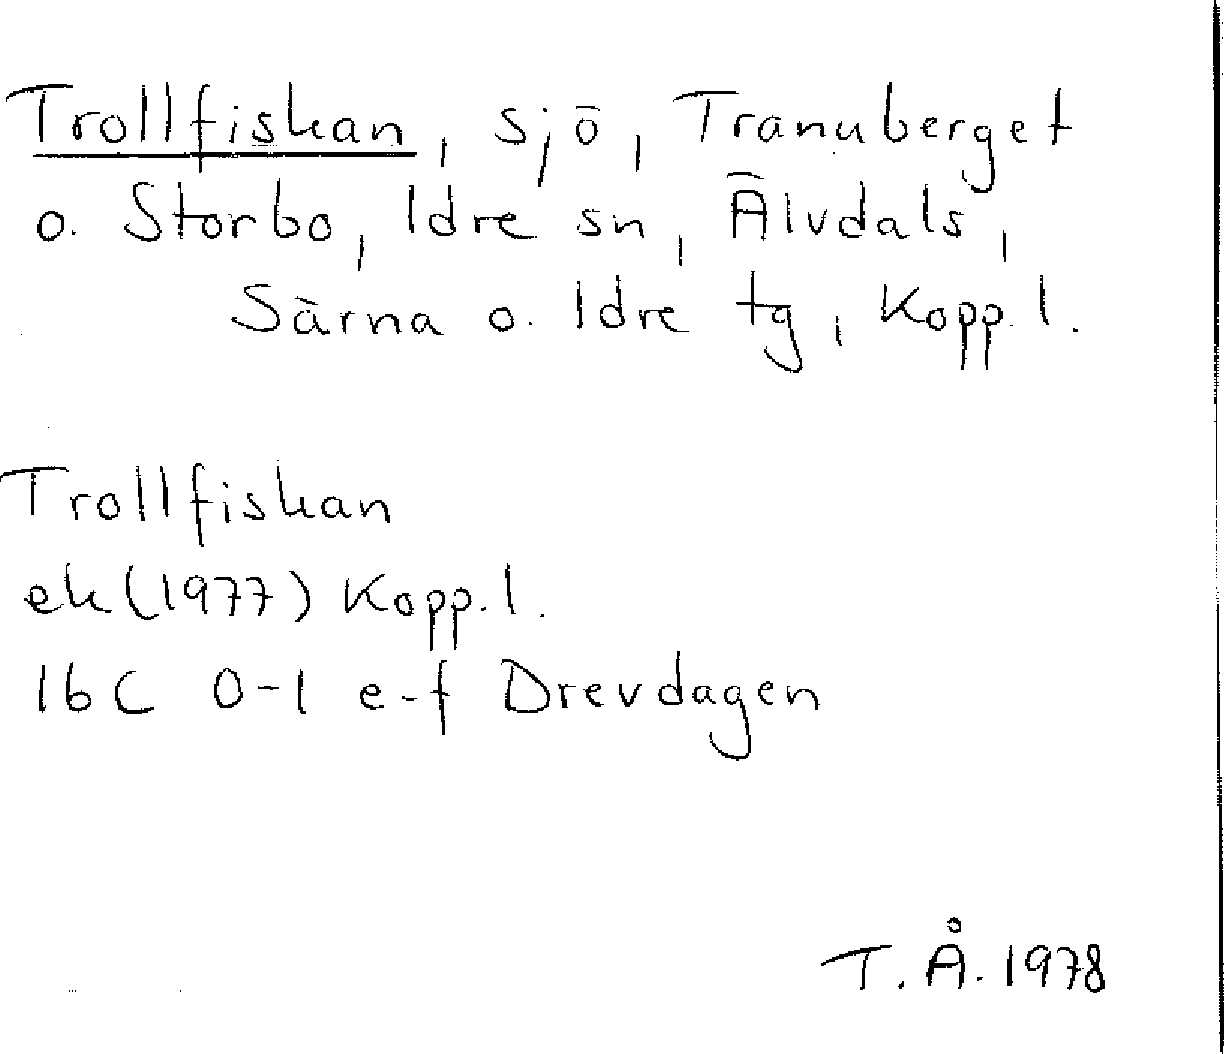 Trollfiskan, sjö, Tranuberget
o. Storbo, Idre sn, Älvdals,
Särna o. Idre tg, Kopp. l.
Trollfiskan
ek (1977) Kopp. l.
16C 0-1 e-f Drevdagen
T. Å. 1978